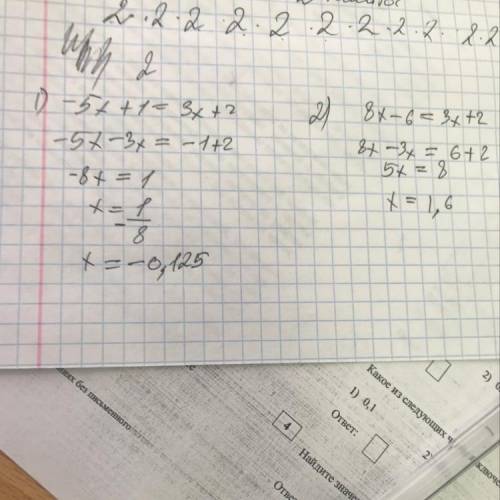 2 · 2 · 2 2 · 2 · 2 · 2 · 2 · 2 · 2 · 2
2
1) -5x + 1 = 3x + 2
-5x - 3x = -1 + 2
-8x = 1
x = 1/-8
x = -0,125
2) 8x - 6 = 3x + 2
8x - 3x = 6 + 2
5x = 8
x = 1,6
без письменного
4
Найдите
Ответ:
Какое из следующих
1) 0,1
2)
Ответ: